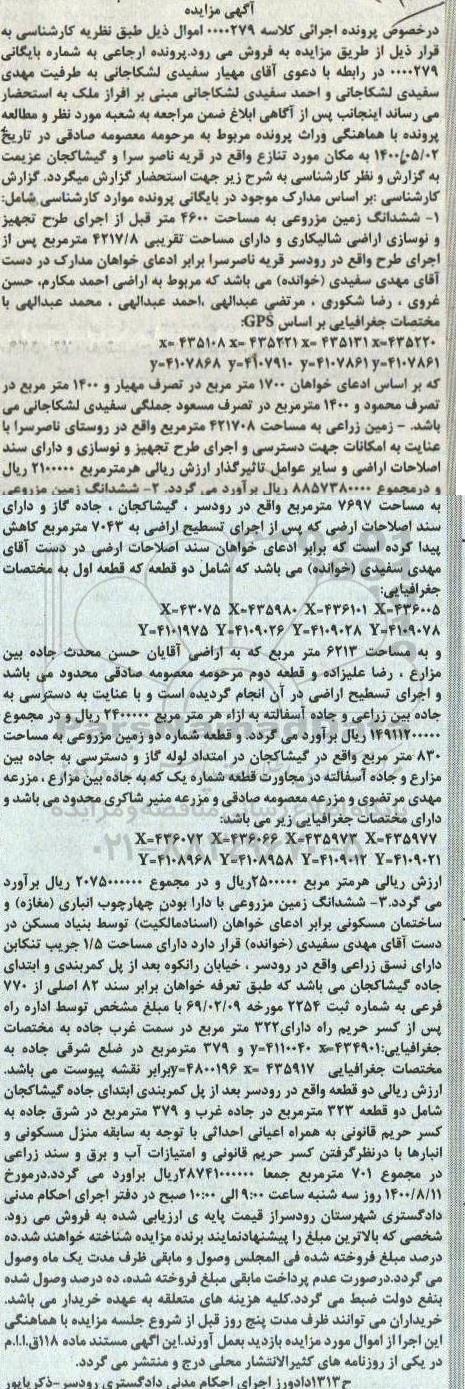 آگهی مزایده
درخصوص پرونده اجرائی کلاسه ۰۰۰۰۲۷۹ اموال ذیل طبق نظریه کارشناسی به
قرار ذیل از طریق مزایده به فروش می رود.پرونده ارجاعی به شماره بایگانی
۰۰۰۰۲۷۹ در رابطه با دعوی آقای مهیار سفیدی لشکاجانی به طرفیت مهدی
سفیدی لشکاجانی و احمد سفیدی لشکاجانی مبنی بر افراز ملک به استحضار
می رساند اینجانب پس از آگاهی ابلاغ ضمن مراجعه به شعبه مورد نظر و مطالعه
پرونده با هماهنگی وراث پرونده مربوط به مرحومه معصومه صادقی در تاریخ
۱۴۰۰/۰۵/۰۲ به مکان مورد تنازع واقع در قریه ناصر سرا و گیشاکجان عزیمت
به گزارش و نظر کارشناسی به شرح زیر جهت استحضار گزارش میگردد. گزارش
کارشناسی :بر اساس مدارک موجود در بایگانی پرونده موارد کارشناسی شامل:
۱- ششدانگ زمین مزروعی به مساحت ۴۶۰۰ متر قبل از اجرای طرح تجهیز
و نوسازی اراضی شالیکاری و دارای مساحت تقریبی ۴۲۱۷/۸ مترمربع پس از
اجرای طرح واقع در رودسر قریه ناصرسرا برابر ادعای خواهان مدارک در دست
آقای مهدی سفیدی (خوانده) می باشد که مربوط به اراضی احمد مکارم، حسن
غروی ، رضا شکوری ، مرتضی عبدالهی ،احمد عبدالهی ، محمد عبدالهی با
مختصات جغرافیایی بر اساس GPS:
x= ۴۳۵۱۰۸ x= ۴۳۵۲۲۱ x= ۴۳۵۱۳۱ x=۴۳۵۲۲۰
y=۴۱۰۷۸۶۸ y=۴۱۰۷۹۱۰ y=۴۱۰۷۸۶۱ y=۴۱۰۷۸۶۱
که بر اساس ادعای خواهان ۱۷۰۰ متر مربع در تصرف مهیار و ۱۴۰۰ متر مربع در
تصرف محمود و ۱۴۰۰ مترمربع در تصرف مسعود جملگی سفیدی لشکاجانی می
باشد. - زمین زراعی به مساحت ۴۲۱۷۰۸ مترمربع واقع در روستای ناصرسرا با
عنایت به امکانات جهت دسترسی و اجرای طرح تجهیز و نوسازی و دارای سند
اصلاحات اراضی و سایر عوامل تاثیرگذار ارزش ریالی هرمترمربع ۲۱۰۰۰۰۰ ریال
و درمجموع ۸۸۵۷۳۸۰۰۰۰ ریال برآورد می گردد. ۲- ششدانگ زمین مزروعی
به مساحت ۷۶۹۷ مترمربع واقع در رودسر ، گیشاکجان ، جاده گاز و دارای
سند اصلاحات ارضی که پس از اجرای تسطیح اراضی به ۷۰۴۳ مترمربع کاهش
پیدا کرده است که برابر ادعای خواهان سند اصلاحات ارضی در دست آقای
مهدی سفیدی (خوانده) می باشد که شامل دو قطعه که قطعه اول به مختصات
جغرافیایی:
X=۴۳۰۷۵ X=۴۳۵۹۸۰ X=۴۳۶۱۰۱ X=۴۳۶۰۰۵
Y=۴۱۰۱۹۷۵ Y=۴۱۰۹۰۲۶ Y=۴۱۰۹۰۲۸ Y=۴۱۰۹۰۷۸
و به مساحت ۶۲۱۳ متر مربع که به اراضی آقایان حسن محدث جاده بین
مزارع ، رضا علیزاده و قطعه دوم مرحومه معصومه صادقی محدود می باشد
و اجرای تسطیح اراضی در آن انجام گردیده است و با عنایت به دسترسی به
جاده بین زراعی و جاده آسفالته به ازاء هر متر مربع ۲۴۰۰۰۰۰ ریال و در مجموع
۱۴۹۱۱۲۰۰۰۰۰ ریال برآورد می گردد. و قطعه شماره دو زمین مزروعی به مساحت
۸۳۰ متر مربع واقع در گیشاکجان در امتداد لوله گاز و دسترسی به جاده بین
مزارع و جاده آسفالته در مجاورت قطعه شماره یک که به جاده بین مزارع ، مزرعه
مهدی مرتضوی و مزرعه معصومه صادقی و مزرعه منیر شاکری محدود می باشد و
دارای مختصات جغرافیایی زیر می باشد:
X=۴۳۶۰۷۲ X=۴۳۶۰۶۶ X=۴۳۵۹۷۳ X=۴۳۵۹۷۷
Y=۴۱۰۸۹۶۸ Y=۴۱۰۸۹۵۸ Y=۴۱۰۹۰۱۲ Y=۴۱۰۹۰۲۱
ارزش ریالی هرمتر مربع ۲۵۰۰۰۰۰ریال و در مجموع ۲۰۷۵۰۰۰۰۰۰ ریال برآورد
می گردد.۳- ششدانگ زمین مزروعی با دارا بودن چهارچوب انباری (مغازه) و
ساختمان مسکونی برابر ادعای خواهان (اسنادمالکیت) توسط بنیاد مسکن در
دست آقای مهدی سفیدی (خوانده) قرار دارد دارای مساحت ۱/۵ جریب تنکابن
دارای نسق زراعی واقع در رودسر ، خیابان رانکوه بعد از پل کمربندی و ابتدای
جاده گیشاکجان می باشد که طبق تعرفه خواهان برابر سند ۸۲ اصلی از ۷۷۰
فرعی به شماره ثبت ۲۲۵۴ مورخه ۶۹/۰۲/۰۹ با مبلغ مشخص توسط اداره راه
پس از کسر حریم راه دارای۳۲۲ متر مربع در سمت غرب جاده به مختصات
جغرافیایی:x=۴۳۴۹۰۱ y=۴۱۱۰۰۴۰ و ۳۷۹ مترمربع در ضلع شرقی جاده به
مختصات جغرافیایی x= ۴۳۵۹۱۷ y=۴۸۰۰۱۹۶برابر نقشه پیوست می باشد.
ارزش ریالی دو قطعه واقع در رودسر بعد از پل کمربندی ابتدای جاده گیشاکجان
شامل دو قطعه ۳۲۳ مترمربع در جاده غرب و ۳۷۹ مترمربع در شرق جاده به
کسر حریم قانونی به همراه اعیانی احداثی با توجه به سابقه منزل مسکونی و
انبارها با درنظرگرفتن کسر حریم قانونی و امتیازات آب و برق و سند زراعی
در مجموع ۷۰۱ مترمربع جمعا ۲۸۷۴۱۰۰۰۰۰۰ریال براورد می گردد.درمورخ
۱۴۰۰/۸/۱۱ روز سه شنبه ساعت ۹:۰۰ الی ۱۰:۰۰ صبح در دفتر اجرای احکام مدنی
دادگستری شهرستان رودسراز قیمت پایه ی ارزیابی شده به فروش می رود.
شخصی که بالاترین مبلغ را پیشنهادنمایند برنده مزایده شناخته خواهند شد.ده
درصد مبلغ فروخته شده فی المجلس وصول و مابقی ظرف مدت یک ماه وصول
می گردد.درصورت عدم پرداخت مابقی مبلغ فروخته شده، ده درصد وصول شده
بنفع دولت ضبط می گردد.کلیه هزینه های متعلقه به عهده خریدار می باشد.
خریداران می توانند ظرف مدت پنج روز قبل از شروع جلسه مزایده با هماهنگی
این اجرا از اموال مورد مزایده بازدید بعمل آورند.این اگهی مستند ماده ۱۱۸ق.ا.ا.م
در یکی از روزنامه های کثیرالانتشار محلی درج و منتشر می گردد.
ح۱۳۱۳دادورز اجرای احکام مدنی دادگستری رودسر-ذکریاپور